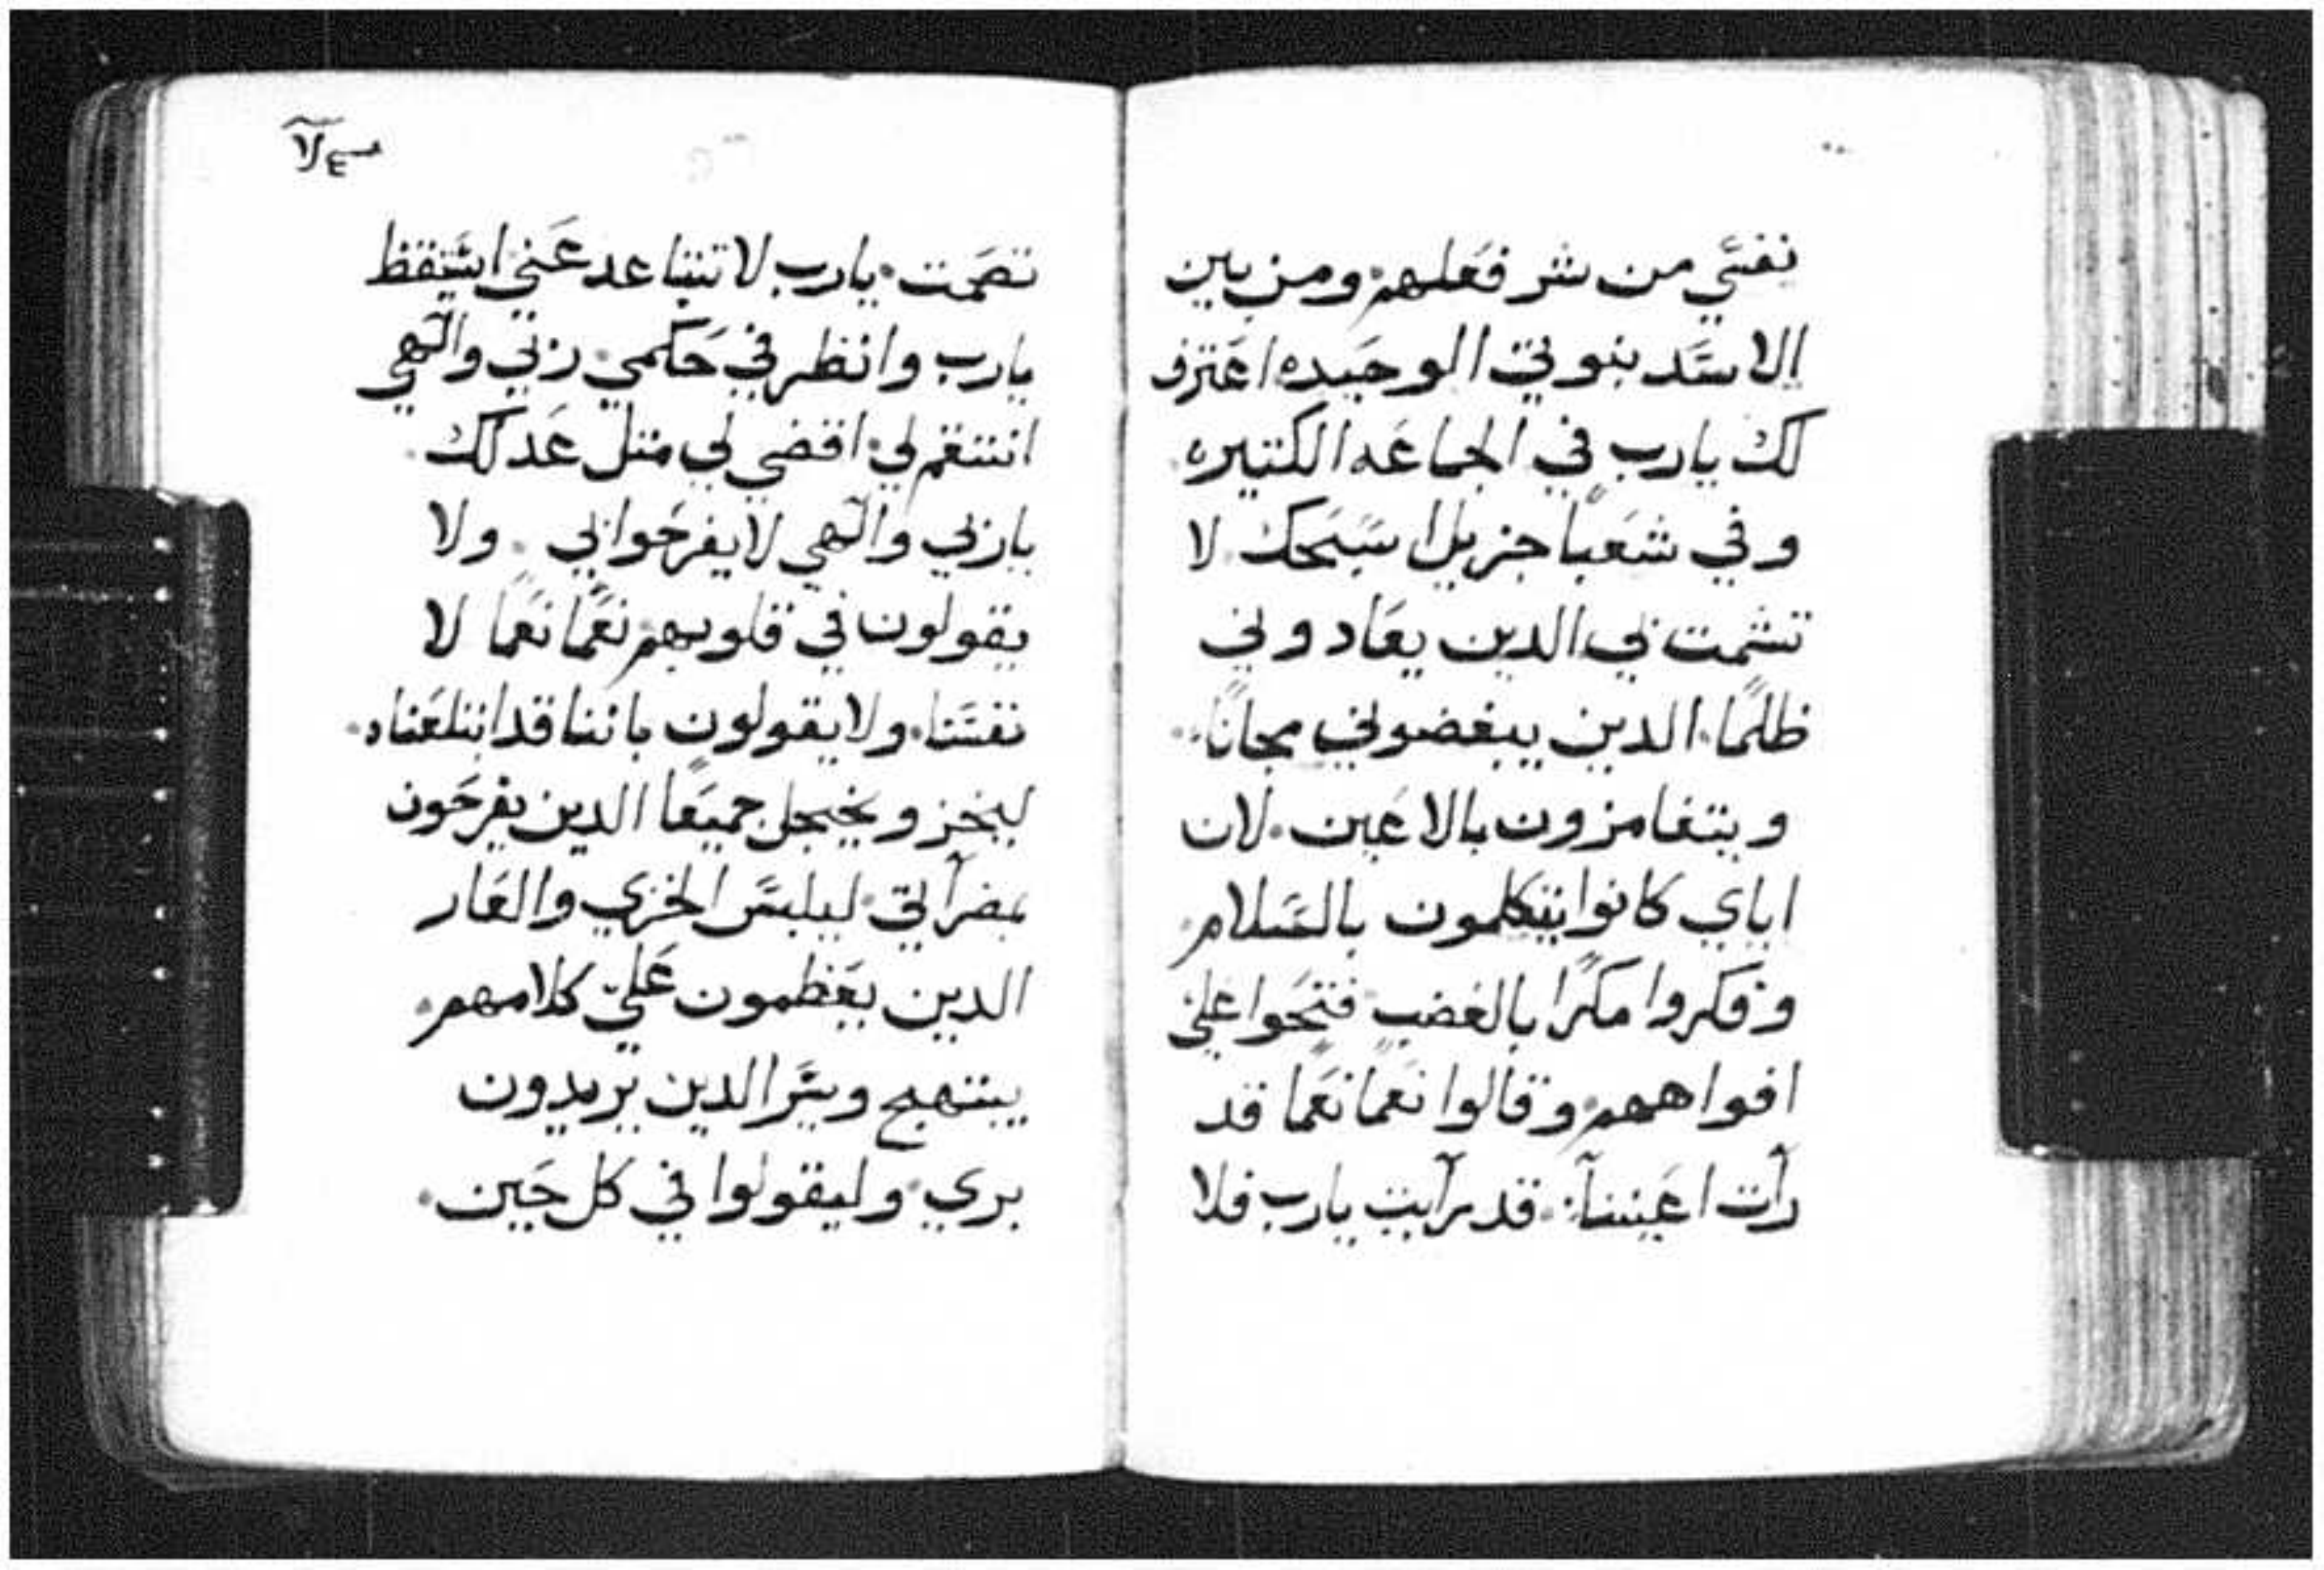 نفسي من شر فعلهم ومن بين
الاسد بنوتي الوحيده اعترف
لك يارب في الجماعه الكتيره
وفي شعباً جزيلاً سبحك لا
تشمت بي الدين يعادوني
ظلماً الدين يبغضوني مجاناً
ويتغامزون بالاعين لان
اياي كانوا يتكلمون بالسلام
وفكروا مكراً بالغضب فتحوا علي
افواههم وقالوا نعماً نعماً قد
رأت اعيننا قد رأيت يارب فلا
تصمت يارب لا تتباعد عني استيقظ
يارب وانظر في حكمي ربي والهي
انتقم لي اقضي لي متل عدلك
ياربي والهي لا يفرحوا بي ولا
يقولون في قلوبهم نعماً نعماً لا
نفسنا ولا يقولون باننا قد ابتلعناه
ليخز ويخجل جميعاً الدين يفرحون
بضرآتي ليلبس الخزي والعار
الدين يعظمون علي كلامهم
يبتهج ويسر الدين يريدون
بري وليقولوا في كل حين